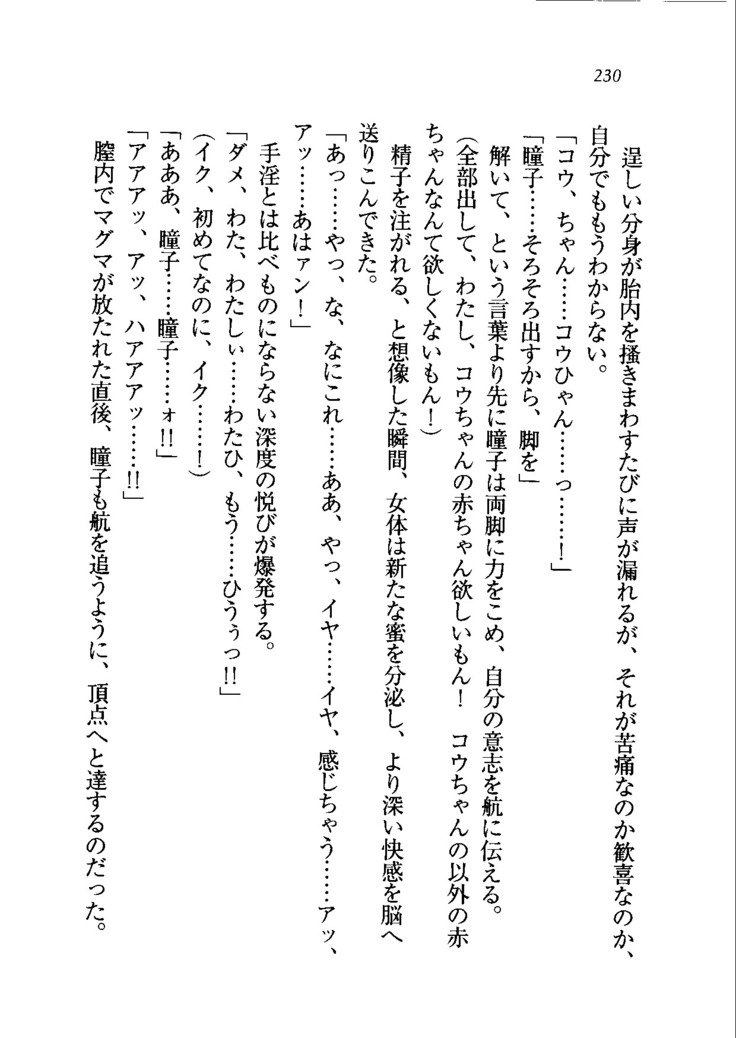 230
逞しい分身が胎内を掻きまわすたびに声が漏れるが、それが苦痛なのか歓喜なのか、
自分でももうわからない。
「コウ、ちゃん……コウひゃん……っ……！」
「瞳子……そろそろ出すから、脚を」
解いて、という言葉より先に瞳子は両脚に力をこめ、自分の意志を航に伝える。
（全部出して、わたし、コウちゃんの赤ちゃん欲しいもん！　コウちゃんの以外の赤
ちゃんなんて欲しくないもん！）
精子を注がれる、と想像した瞬間、女体は新たな蜜を分泌し、より深い快感を脳へ
送りこんできた。
「あっ……やっ、な、なにこれ……ああ、やっ、イヤ……イヤ、感じちゃう……アッ、
アッ……あはァン！」
手淫とは比べものにならない深度の悦びが爆発する。
「ダメ、わた、わたしぃ……わたひ、もう……ひうぅっ!!」
（イク、初めてなのに、イク……！）
「あああ、瞳子……瞳子……ォ!!」
「アアアッ、アッ、ハアアアッ……!!」
膣内でマグマが放たれた直後、瞳子も航を追うように、頂点へと達するのだった。